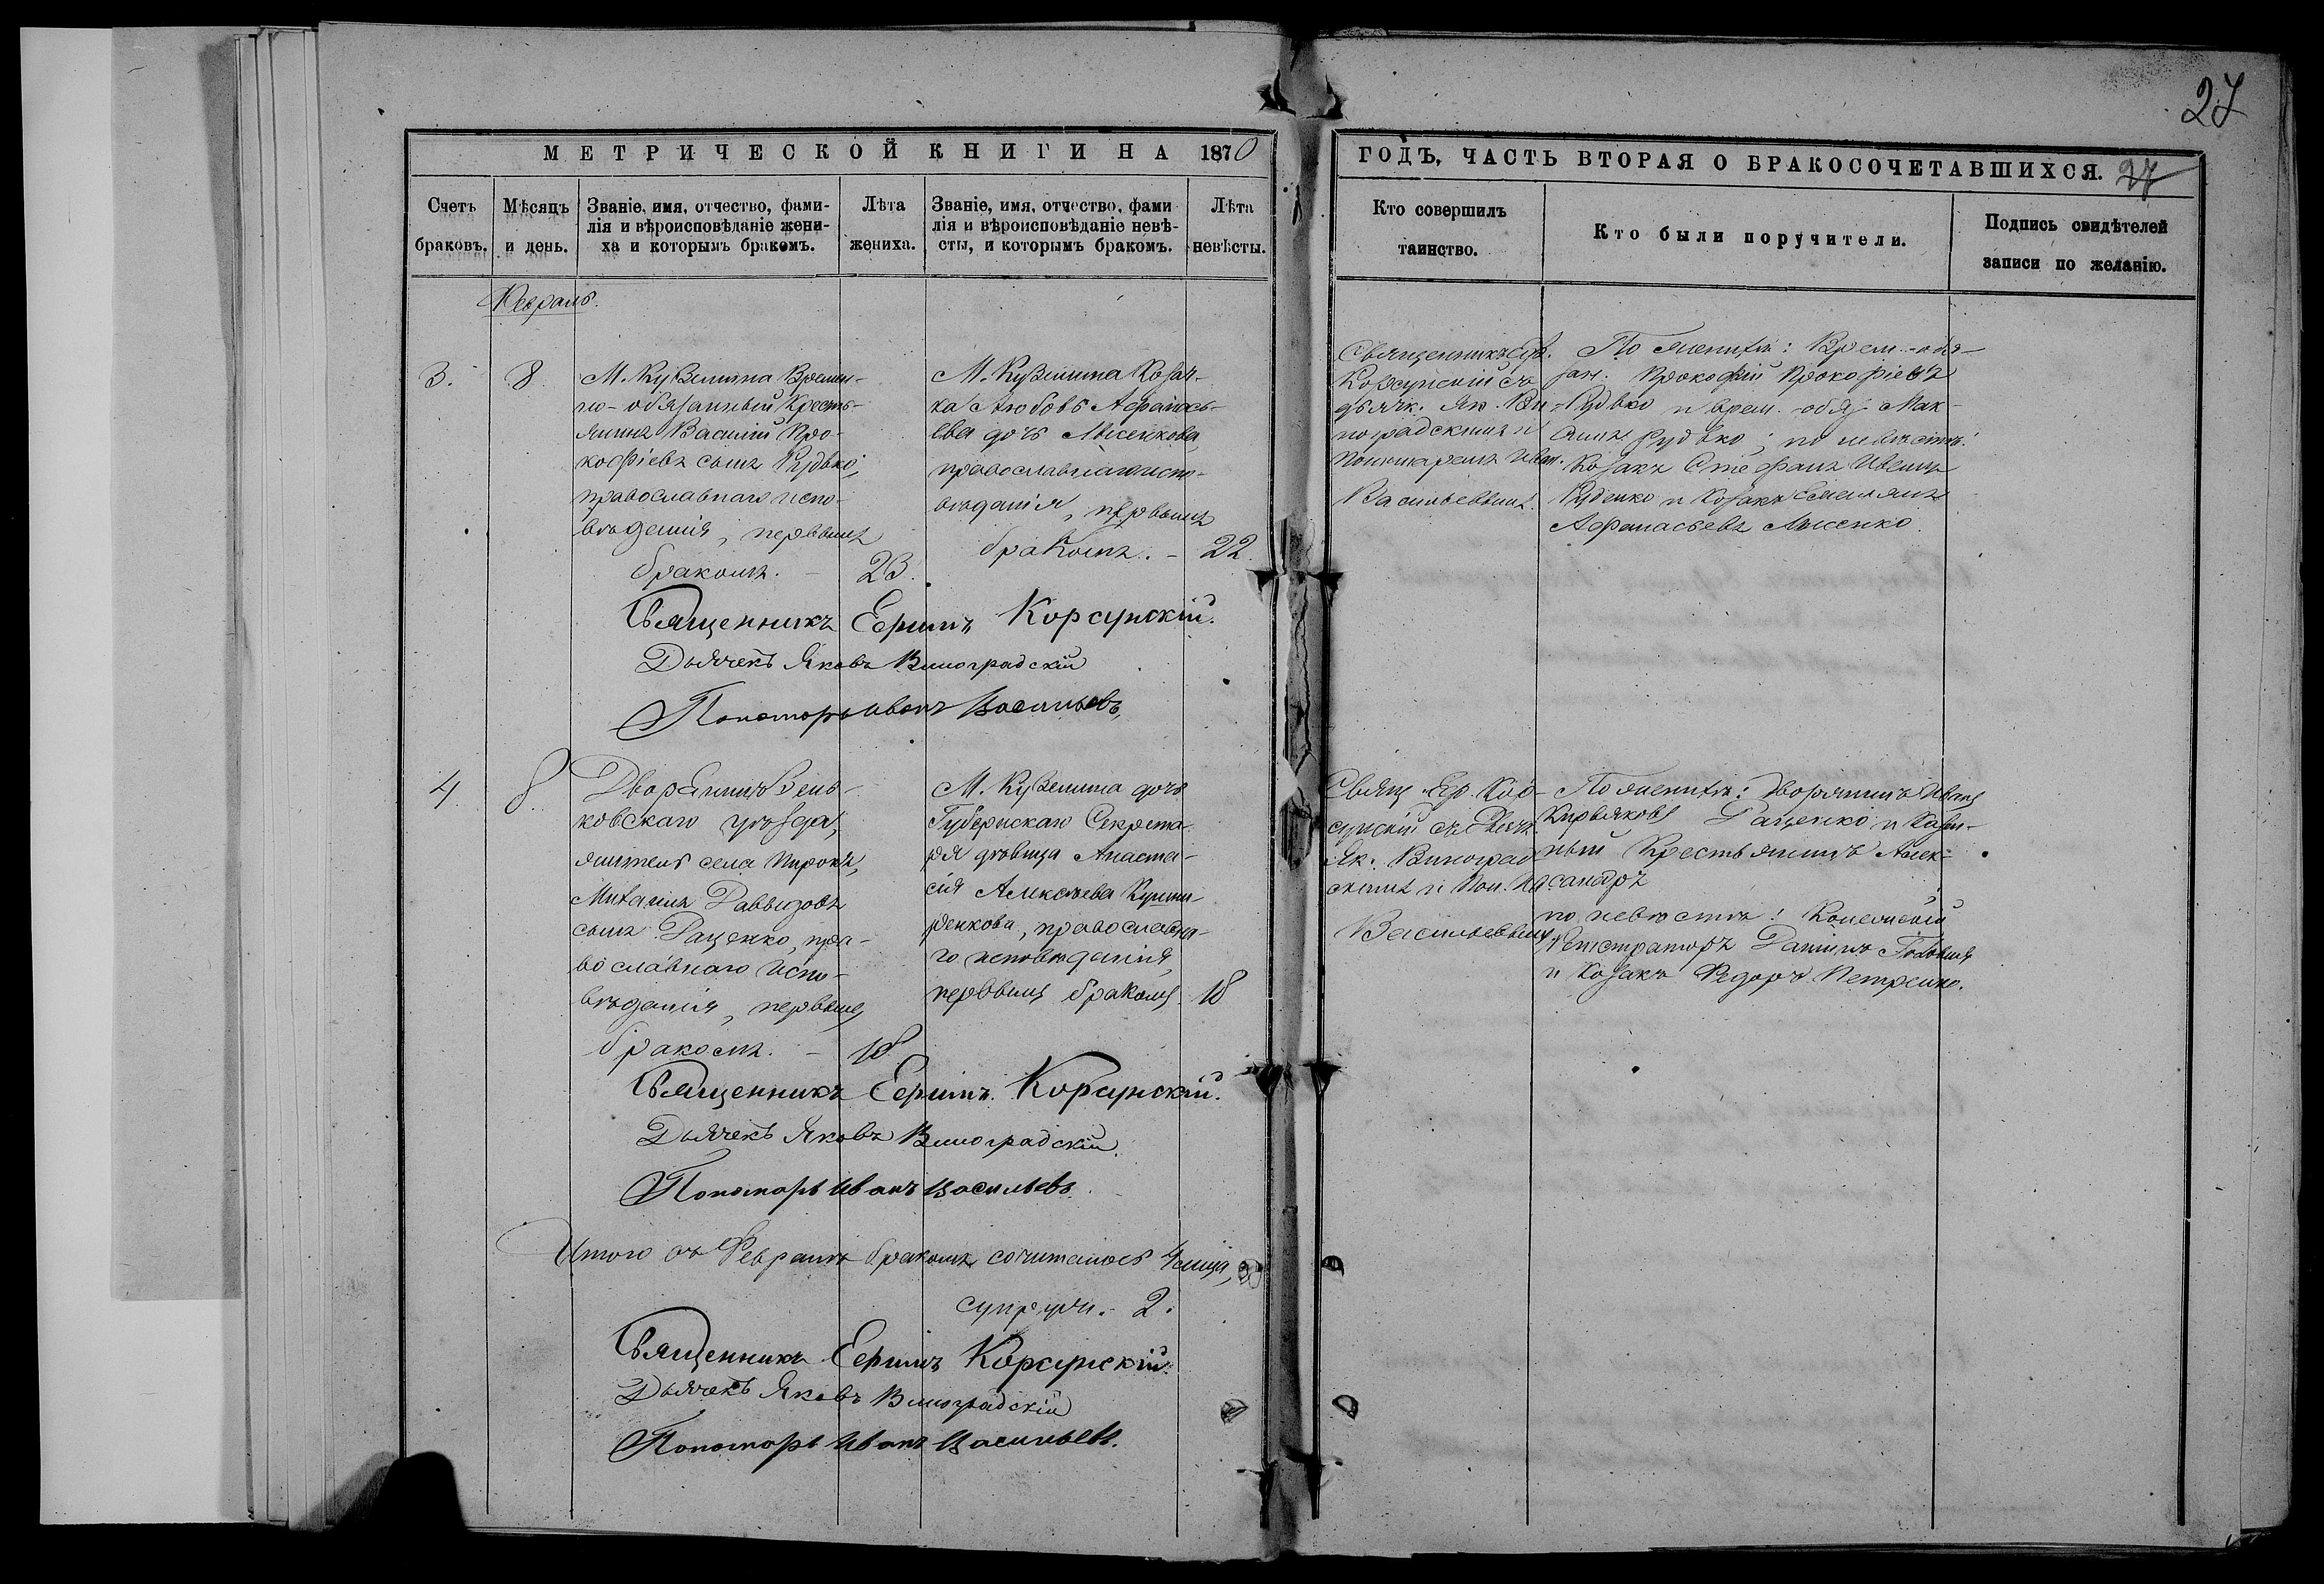 27
МЕТРИЧЕСКОЙ КНИГИ НА 1870
ГОДЪ, ЧАСТЬ ВТОРАЯ О БРАКОСОЧЕТАВШИХСЯ. 27
Счетъ браковъ.
Мѣсяцъ и день.
Званіе, имя, отчество, фами-
лія и вѣроисповѣданіе жени-
ха и которымъ бракомъ.
Лѣта жениха.
Званіе, имя, отчество, фами
лія и вѣроисповѣданіе невѣ-
сты, и которымъ бракомъ.
Лѣта невѣсты.
Кто совершилъ таинство.
Кто были поручители.
Подпись свидѣтелей
записи по желанію.
Февраль.
3.
8
М. Куземина Времен-
но-обязанный Кресть-
янинъ Василій Про-
кофіевъ сынъ Рудько,
православнаго испо-
вѣденія, первымъ
бракомъ. - 23.
М. Куземина Козач-
ка Любовь Афанась-
ева дочь Лысенкова,
православнаго испо-
вѣданія, первымъ
бракомъ. - 22.
Священникъ Еф.
Корсунскій съ
дьячк. Як. Ви-
ноградскимъ и
Пономаремъ Иван.
Васильевымъ.
По женихѣ: Врем.-обя-
зан. Прокофій Прокофіевъ
Рудько и врем.-обяз. Мак-
симъ Рудько; по невѣстѣ:
Козакъ Стефанъ
Руденко и Козакъ Емельянъ
Афанасьевъ Лысенко.
Священникъ Ефимъ Корсунскій.
Дьячекъ Яковъ Виноградскій
Пономарь Иванъ Васильевъ
4
8
Дворянинъ Зень-
ковскаго уѣзда,
житель села Пирокъ,
Михаилъ Давыдовъ
сынъ Гаценко, пра-
вославнаго испо-
вѣданія, первымъ
бракомъ. - 18
М. Куземина дочь
Губернскаго Секрета-
ря дѣвица Анаста-
сія Алексѣева
православна-
го исповѣданія,
первымъ бракомъ 18
Свящ. Еф. Кор-
сунскій съ Дьячк.
Як. Виноград-
скимъ и Пон. Ив.
Васильевымъ
По женихѣ: Дворянинъ Иванъ
Кирьяковъ Гаценко и Казен-
ный Крестьянинъ Алек-
сандръ
по невѣстѣ: Колежскій
Регистраторъ Даніилъ
и Козакъ Федоръ Петренко.
Священникъ Ефимъ Корсунскій.
Дьячекъ Яковъ Виноградскій.
Пономарь Иванъ Васильевъ.
Итого въ Февралѣ бракомъ сочиталось 4 лица,
супруж. 2.
Священникъ Ефимъ Корсунскій.
Дьячекъ Яковъ Виноградскій
Пономарь Иванъ Васильевъ.